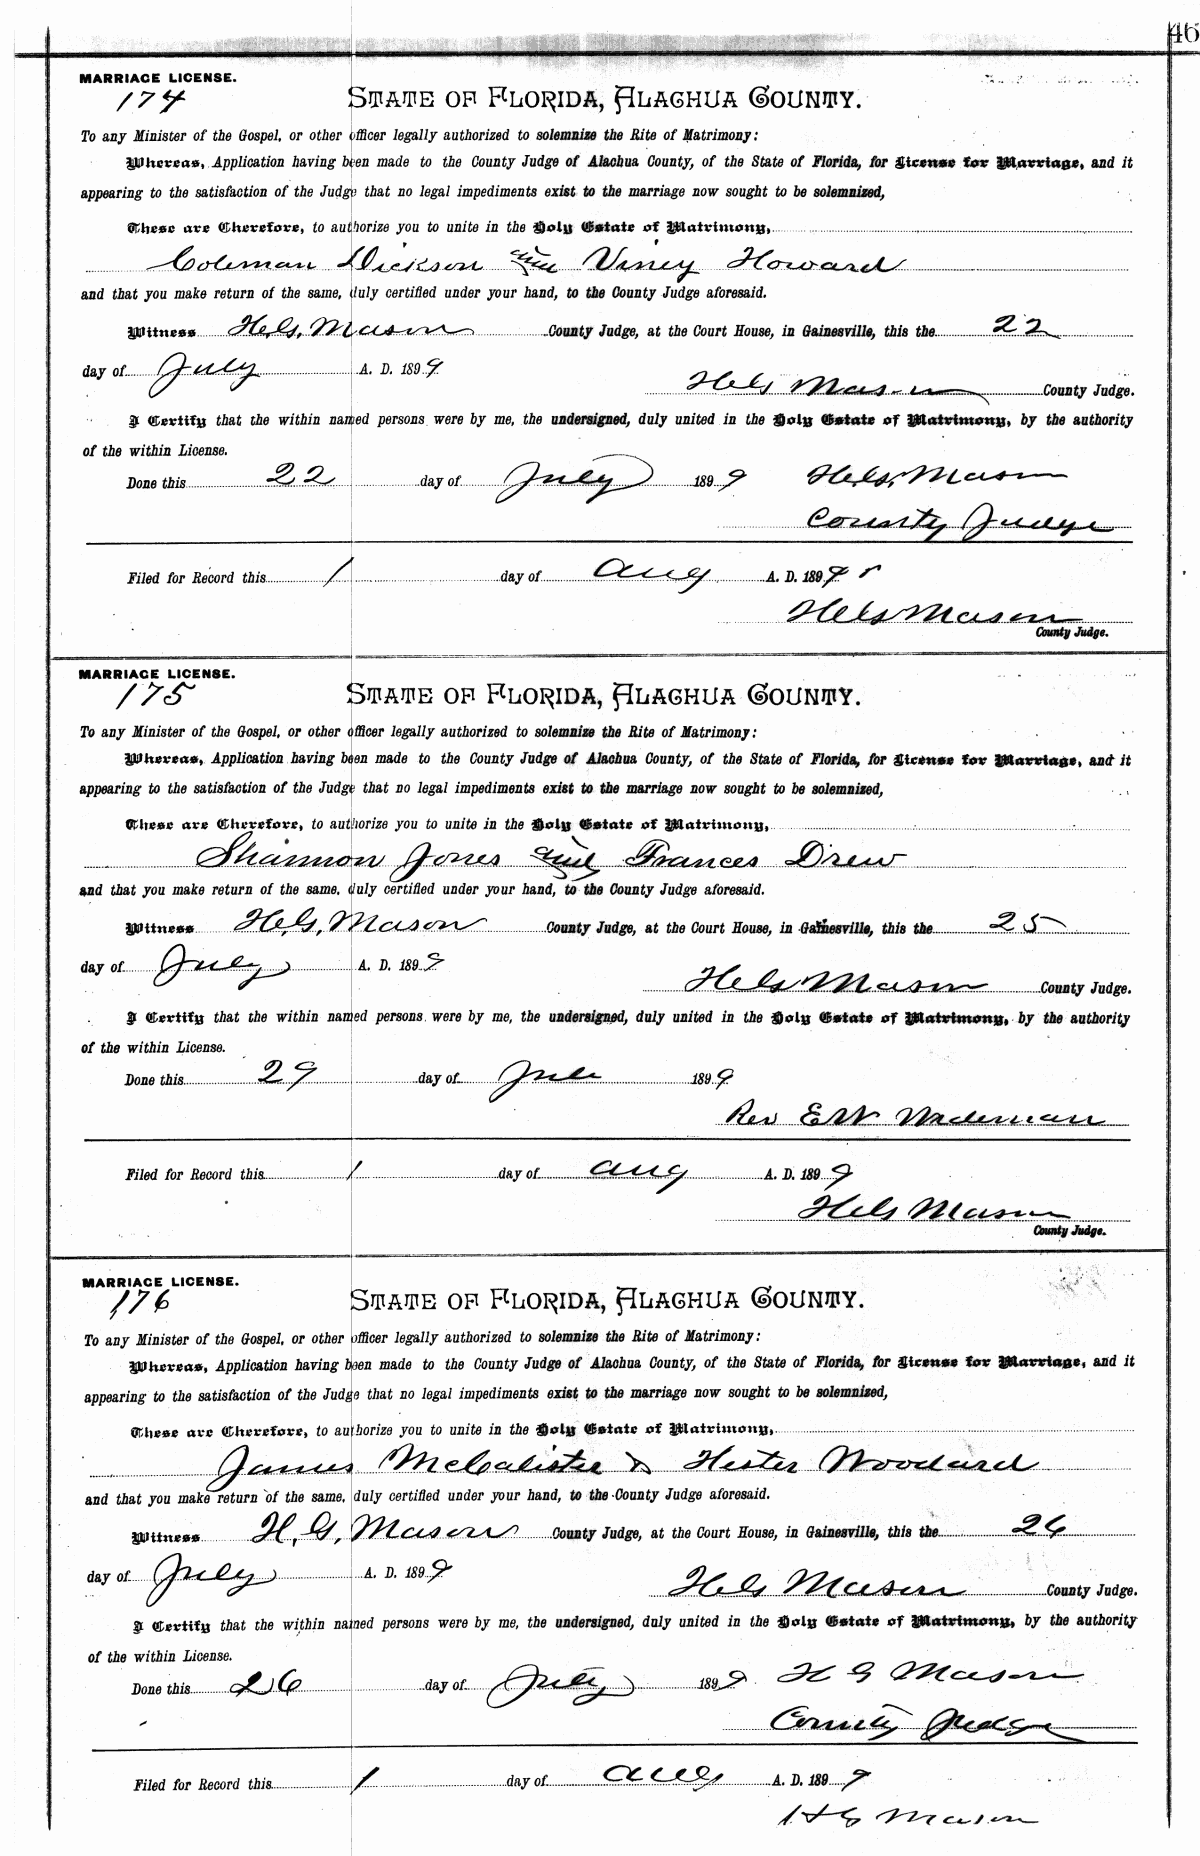 46
MARRIAGE LICENSE.
174
STATE OF FLORIDA, ALACHUA COUNTY.
To any Minister of the Gospel, or other officer legally authorized to solemnize the Rite of Matrimony:
Whereas, Application having been made to the County Judge of Alachua County, of the State of Florida, for License for Marriage, and it
appearing to the satisfaction of the Judge that no legal impediments exist to the marriage now sought to be solemnized,
These are Therefore, to authorize you to unite in the Holy Estate of Matrimony,
Coleman Dickson and Viney Howard
and that you make return of the same, duly certified under your hand, to the County Judge aforesaid.
Witness H.G. Mason County Judge, at the Court House, in Gainesville, this the 22
day of July A. D. 1899
H G Mason County Judge.
I Certify that the within named persons were by me, the undersigned, duly united in the Holy Estate of Matrimony, by the authority
of the within License.
Done this 22 day of July 1899 H.G. Mason
County Judge
Filed for Record this 1 day of Aug A. D. 1899
H G Mason
County Judge.
MARRIAGE LICENSE.
175
STATE OF FLORIDA, ALACHUA COUNTY.
To any Minister of the Gospel, or other officer legally authorized to solemnize the Rite of Matrimony:
Whereas, Application having been made to the County Judge of Alachua County, of the State of Florida, for License for Marriage, and it
appearing to the satisfaction of the Judge that no legal impediments exist to the marriage now sought to be solemnized,
These are Therefore, to authorize you to unite in the Holy Estate of Matrimony,
Shannon Jones and Frances Drew
and that you make return of the same, duly certified under your hand, to the County Judge aforesaid.
Witness H.G. Mason County Judge, at the Court House, in Gainesville, this the 25
day of July A. D. 1899
H G Mason County Judge.
I Certify that the within named persons were by me, the undersigned, duly united in the Holy Estate of Matrimony, by the authority
of the within License.
Done this 29 day of 1899
Rev E W
Filed for Record this 1 day of Aug A. D. 1899
H G Mason
County Judge.
MARRIAGE LICENSE.
176
STATE OF FLORIDA, ALACHUA COUNTY.
To any Minister of the Gospel, or other officer legally authorized to solemnize the Rite of Matrimony:
Whereas, Application having been made to the County Judge of Alachua County, of the State of Florida, for License for Marriage, and it
appearing to the satisfaction of the Judge that no legal impediments exist to the marriage now sought to be solemnized,
These are Therefore, to authorize you to unite in the Holy Estate of Matrimony,
James McCalister & Hester Woodard
and that you make return of the same, duly certified under your hand, to the County Judge aforesaid.
Witness H. G. Mason County Judge, at the Court House, in Gainesville, this the 26
day of July A. D. 1899
H G Mason County Judge.
I Certify that the within named persons were by me, the undersigned, duly united in the Holy Estate of Matrimony, by the authority
of the within License.
Done this 26 day of July 1899 H G Mason
County Judge
Filed for Record this 1 day of Aug A. D. 1899
H G Mason